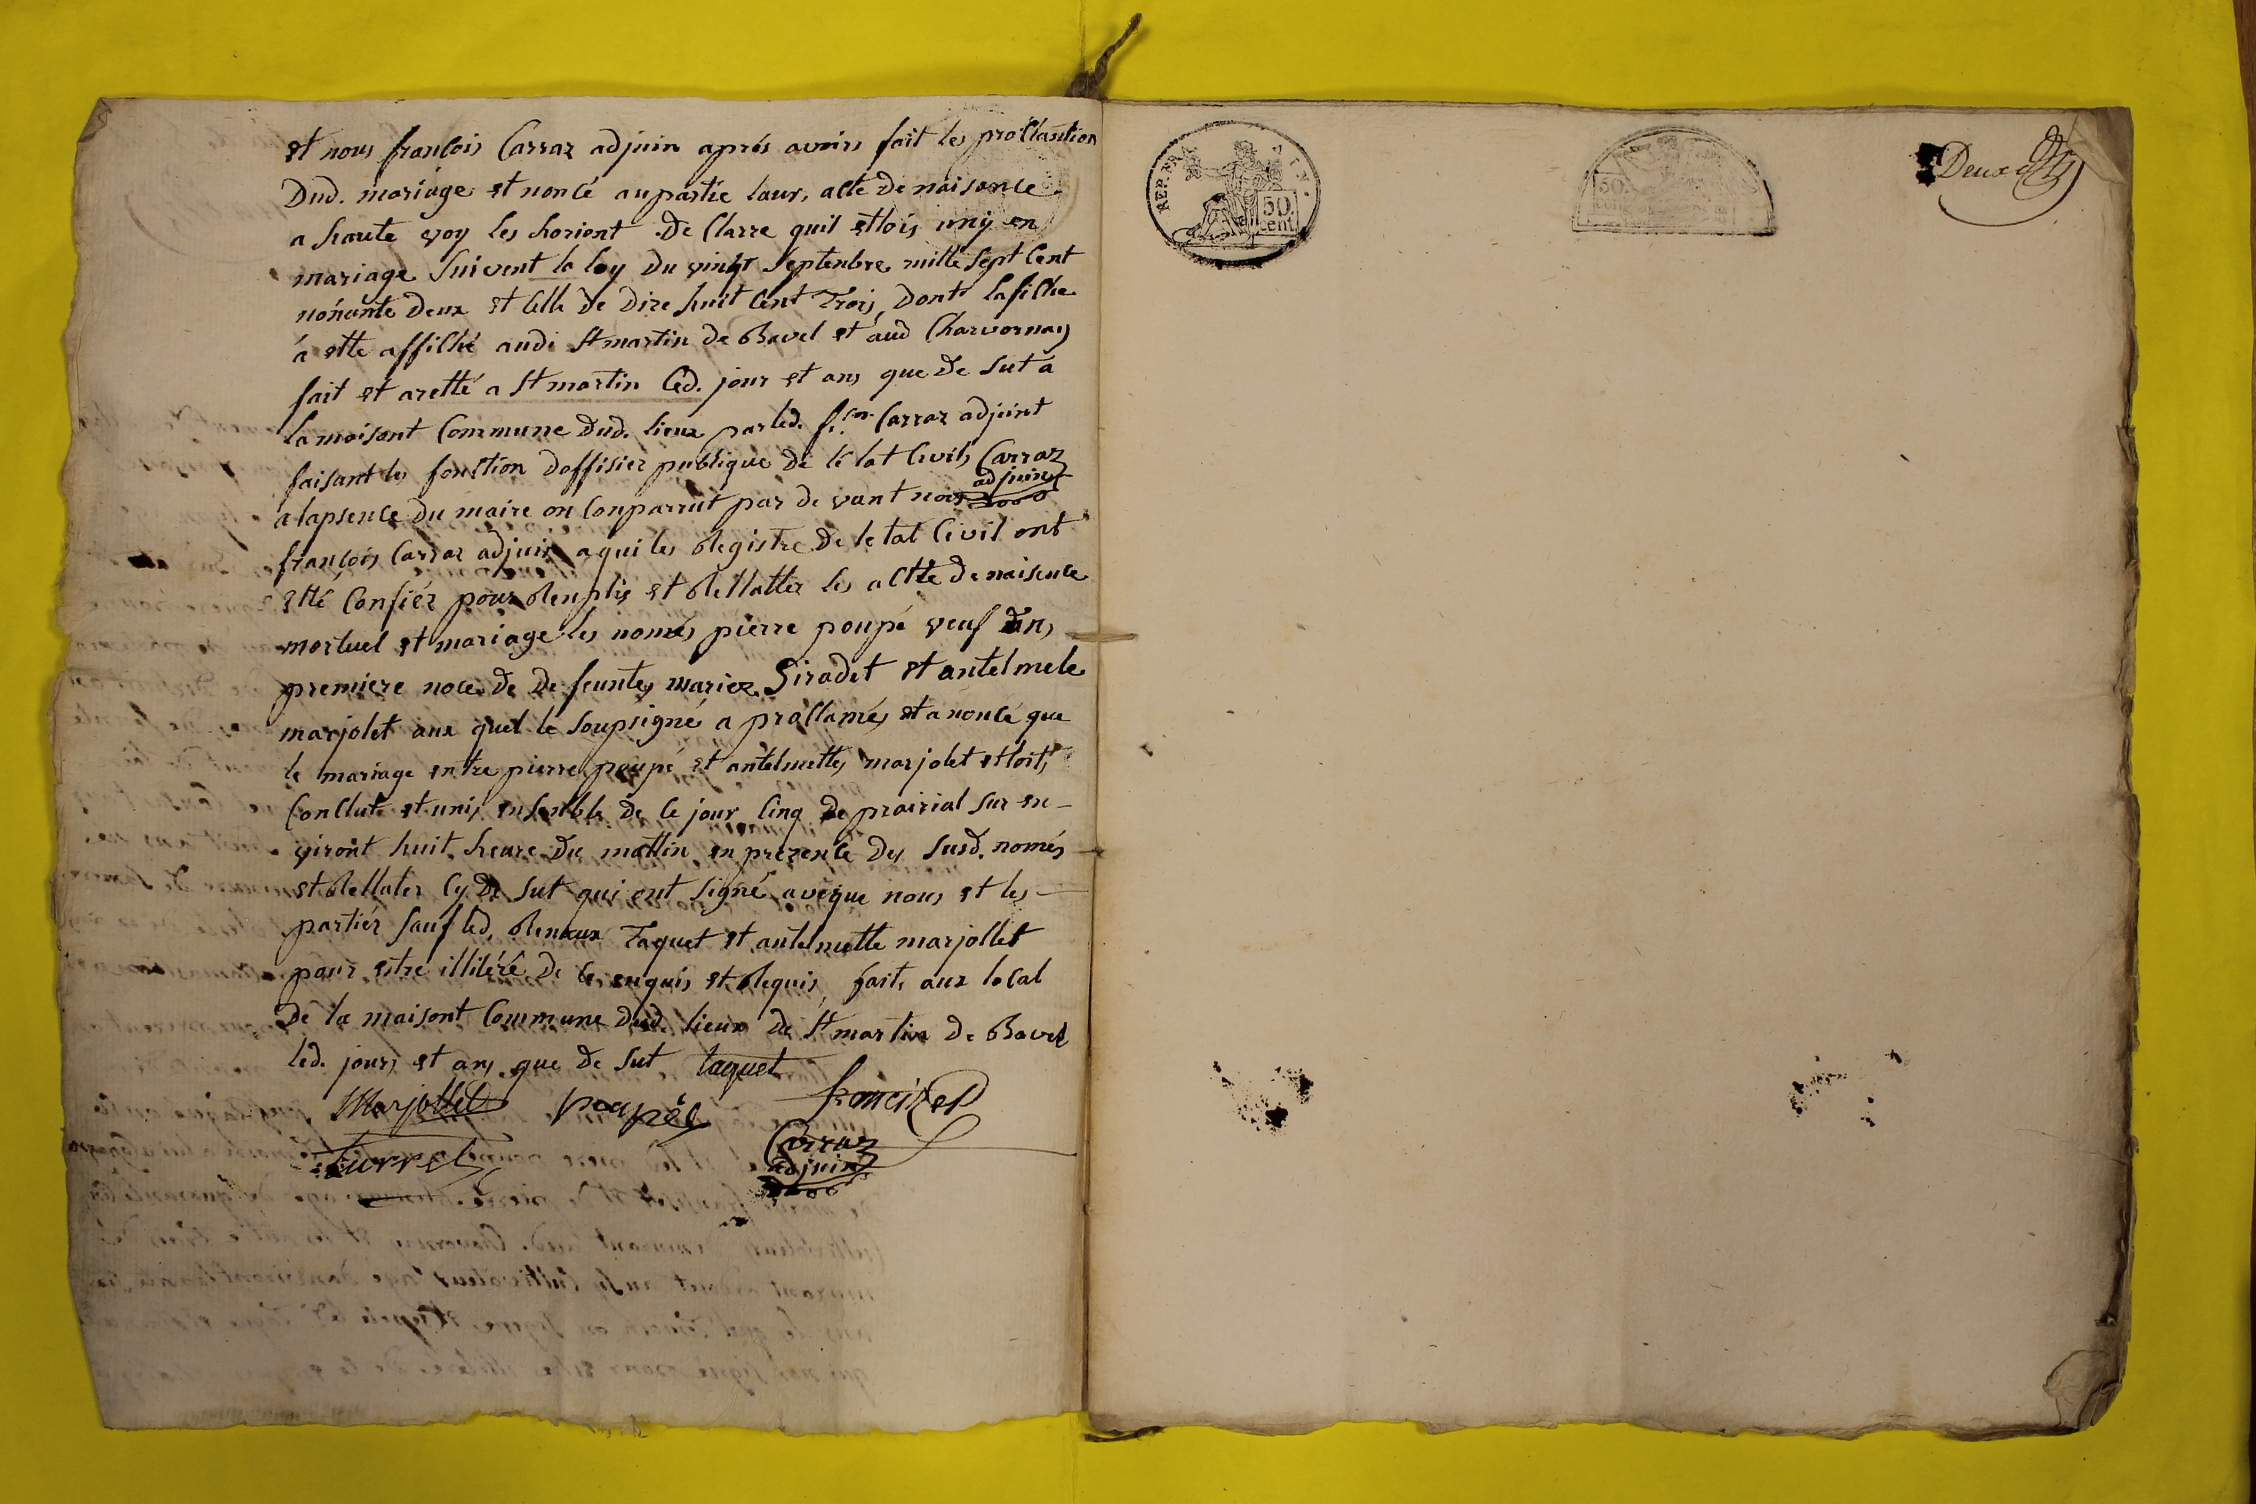 et nous francois Carraz adjuin aprés avoirs fait les procllamtion
Dud. mariage et noncé au partie laur, acte de naisance
a haute voy les horiont de Clarre quil ettois uny en
mariage suivent la loy du vingt septenbre mille sept Cent
nonante deux et celle de dixe huit cent Trois, dont lafiche
á ette affiché audi St martin de Bavel et aud Charvornay
fait et aretté a St martin Led. jour et ans que de sut a
la moisont Commune dud. lieux par led. f.cois Carraz adjuint
faisant les fonction doffisier publique de lé tat Civils Carraz
adjuint
a lapsence du maire on Conparrut par de vant nous
francois Carraz adjuin a qui les Registre de le tat Civil ont
etté Confiér pour Renplis et Rellatter les actte de naisence
mortuel et mariage les només pierre poupé veuf dans
premiere noce de De feuntes mariez Siradet et antelmele
marjolet aux quel le soupsigné a procllamés et a noncé que
le mariage entre pierre poupé et antelmettes marjolet ettoit
Conclut et unis ensenble de ce jour cinq de prairial sur en-
viront huit heure du mattin en prezence des susd. només
et Rellater Cy de sut qui ont signé aveque nous et les
partiér sauf led. Renaux Taquet et antelmette marjollet
pour estre illitéré de ce enquis et Requis, fait aux local
de la maisont Commune dud. lieux de St martin de Bavel
led. jours et ans que de sut taquet
Marjollet poupé francised
Carraz
adjuint
Furret
REP. FRA.
50.
cent
50.
Deux